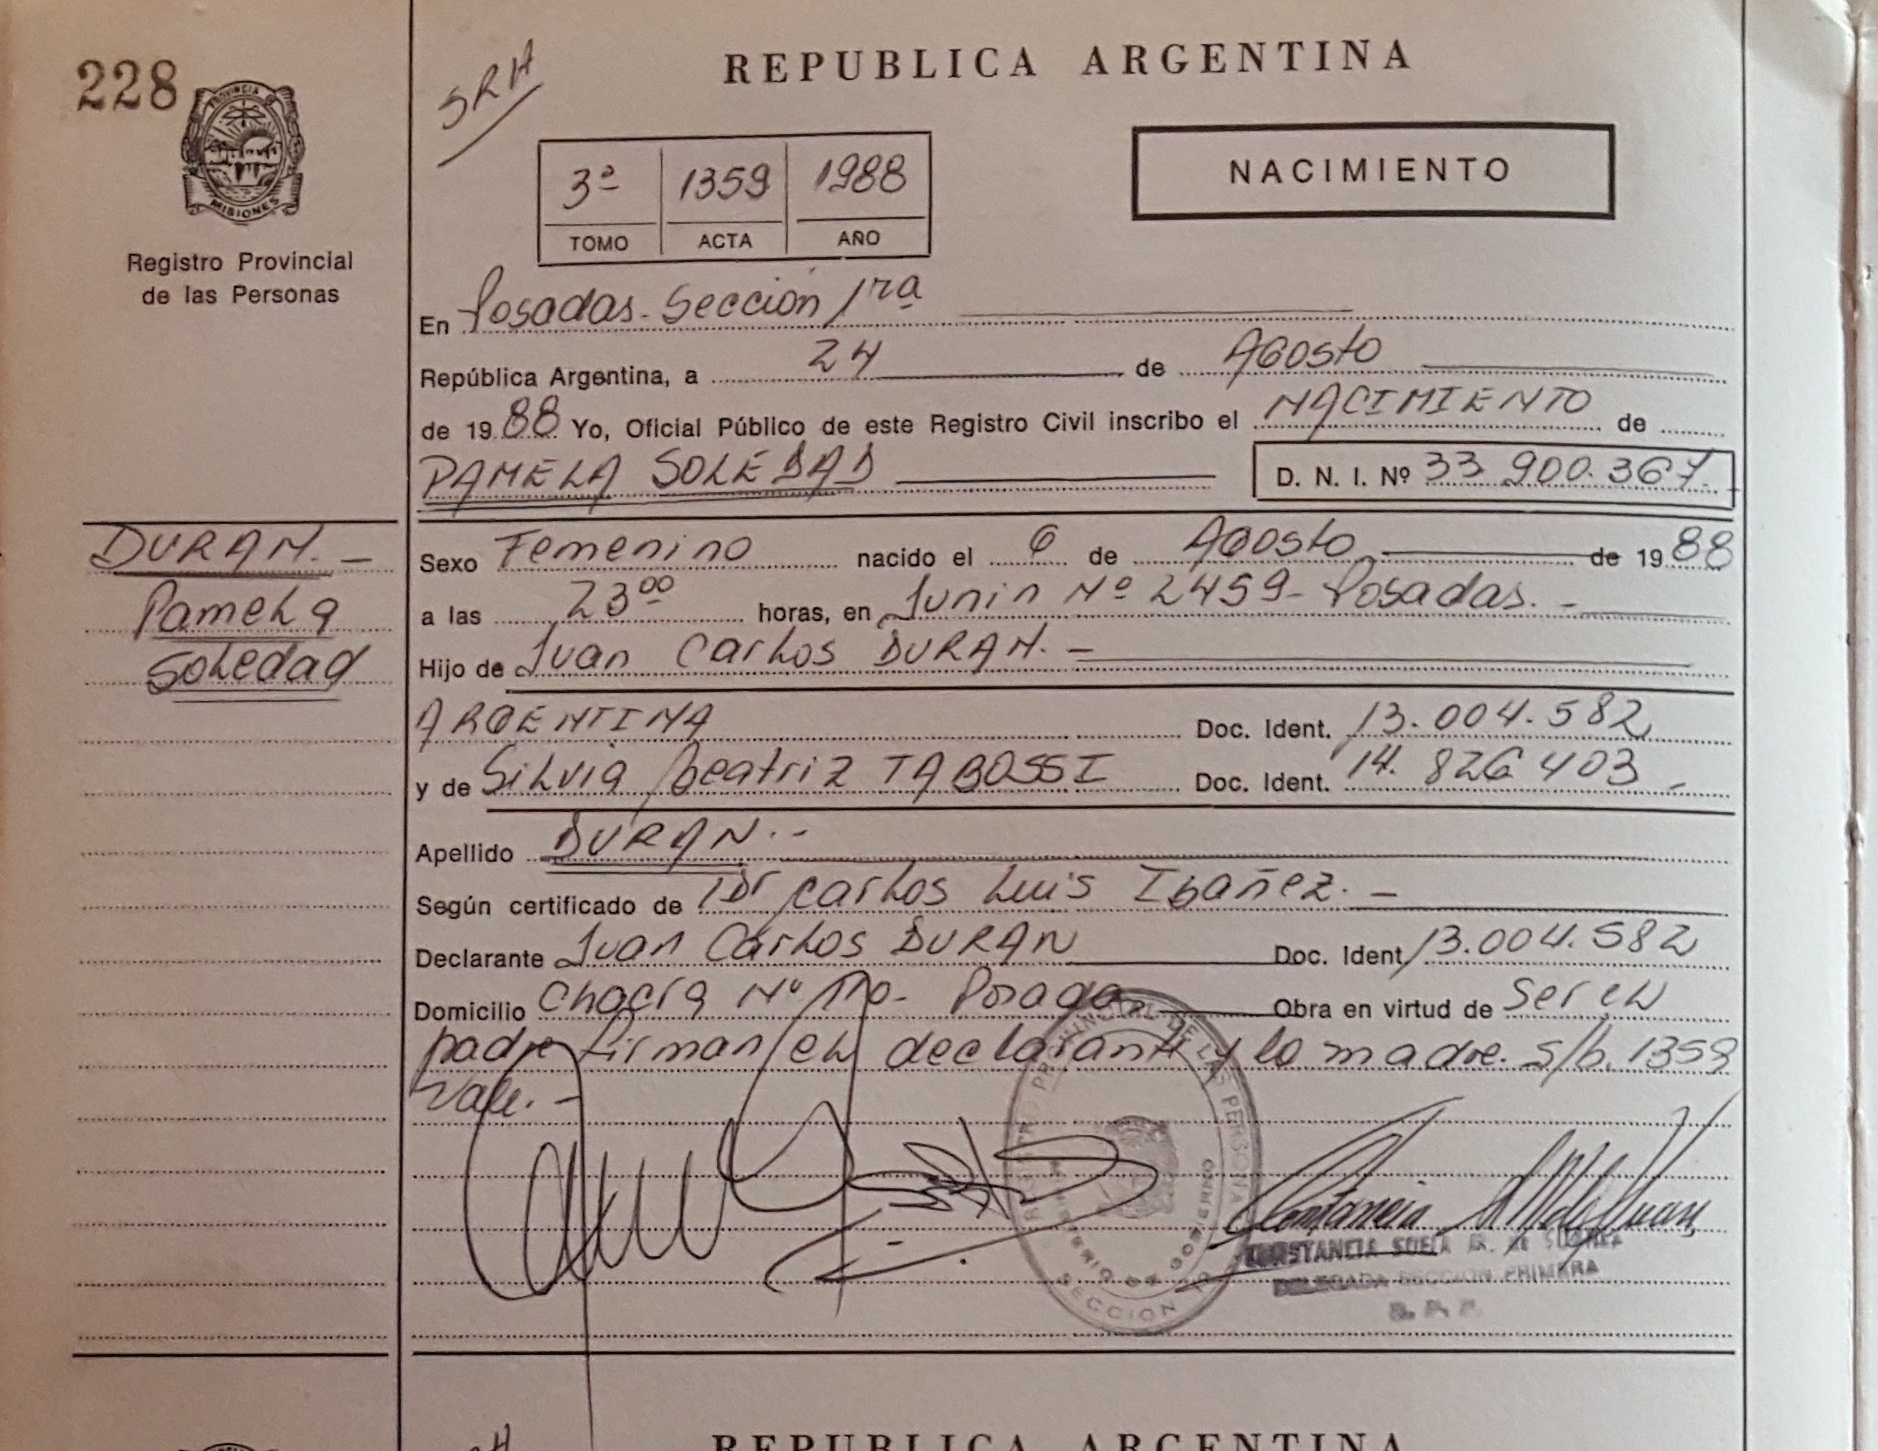 228
PROVINCIA DE
MISIONES
Registro Provincial
de las Personas
SRH
REPUBLICA ARGENTINA
3ª 1359 1988
TOMO ACTA AÑO
NACIMIENTO
En Posadas - Sección 1ra
República Argentina, a 24 de Agosto
de 1988 Yo, Oficial Público de este Registro Civil inscribo el NACIMIENTO de
PAMELA SOLEDAD D. N. I. Nº 33 900.367.
DURAN. -
Pamela
Soledad
Sexo Femenino nacido el 6 de Agosto de 1988
a las 23⁰⁰ horas, en Junin Nº 2459 - Posadas. -
Hijo de Juan Carlos DURAN. -
ARGENTINA Doc. Ident. 13.004.582
y de Silvia Beatriz TABOSSI Doc. Ident. 14.826 403 -
Apellido DURAN. -
Según certificado de Dr Carlos Luis Ibañez. -
Declarante Juan Carlos DURAN Doc. Ident. 13.004.582
Domicilio Chacra Nº 110 - Posadas Obra en virtud de Ser el
padre firman el declarante y la madre. s/b. 1359
Vale. -
REGISTRO PROVINCIAL DE LAS PERSONAS
MINISTERIO DE GOBIERNO
SECCION
CONSTANCIA DE SUAREZ
DELEGADA SECCION PRIMERA
REPUBLICA ARGENTINA